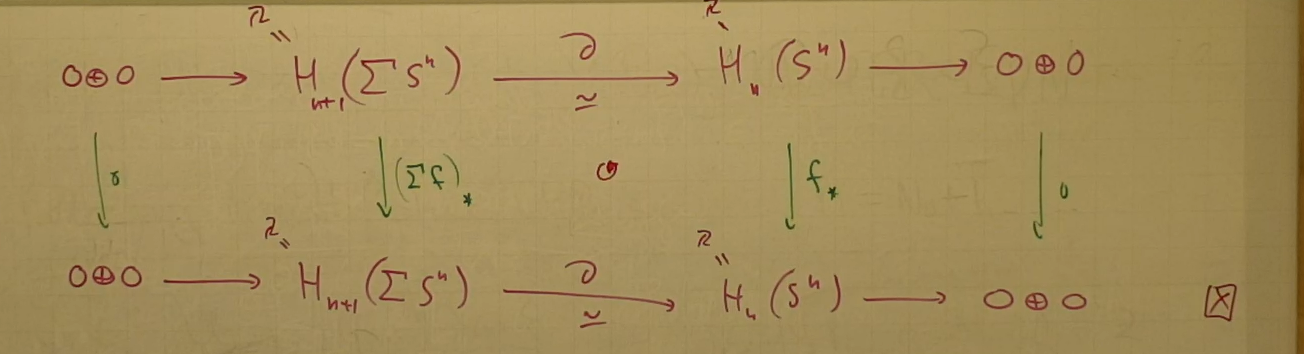 ℤ ℤ
0⊕0 → H_{n+1}(ΣSⁿ) —∂→ ≃ H_n(Sⁿ) → 0⊕0
↓ 0 ↓ (Σf)_* ↺ ↓ f_* ↓ 0
ℤ ℤ
0⊕0 → H_{n+1}(ΣSⁿ) —∂→ ≃ H_n(Sⁿ) → 0⊕0 ☒